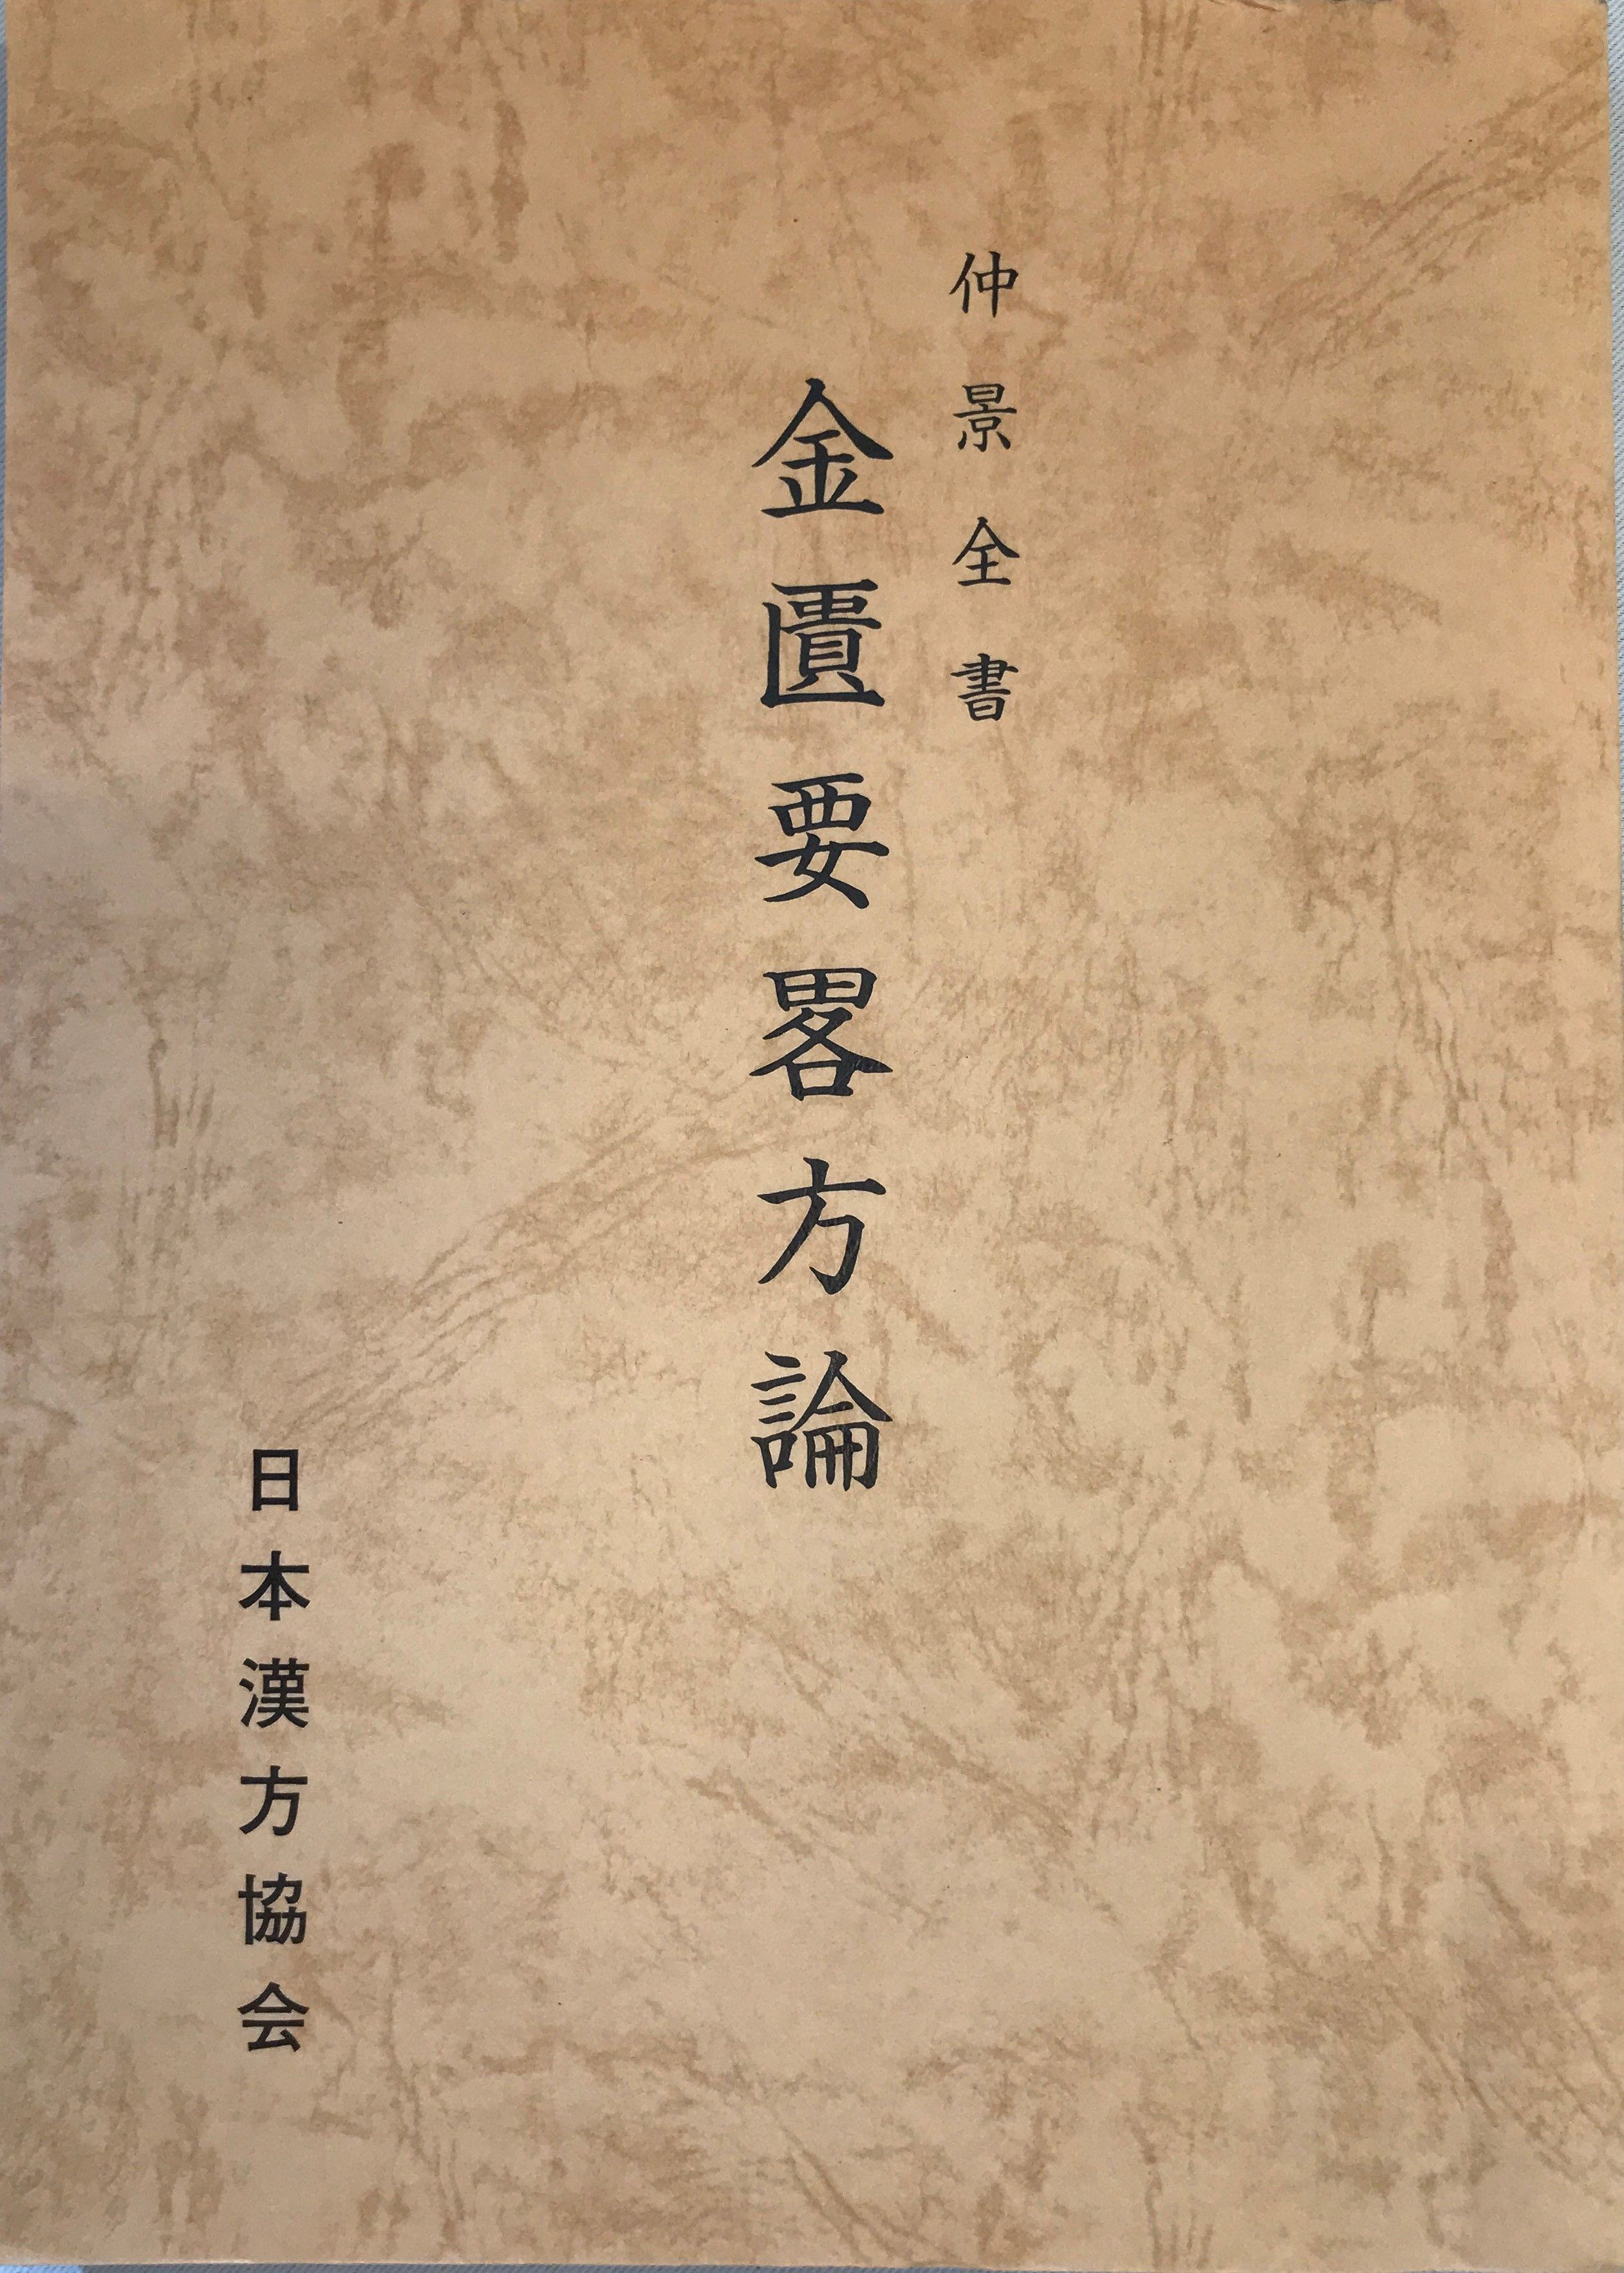 仲景全書
金匱要畧方論
日本漢方協会